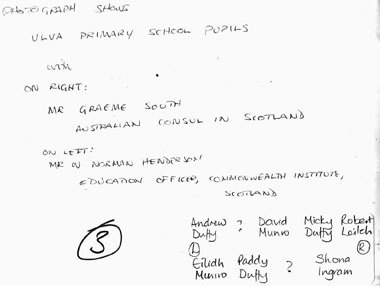 PHOTOGRAPH SHOWS
ULVA PRIMARY SCHOOL PUPILS
with
ON RIGHT:
MR GRAEME SOUTH
AUSTRALIAN CONSUL IN SCOTLAND
ON LEFT:
MR W NORMAN HENDERSON
EDUCATION OFFICER, COMMONWEALTH INSTITUTE,
SCOTLAND
Andrew ? David Micky Robert
Duffy Munro Duffy Leitch
L R
3
Eilidh Paddy ? Shona
Munro Duffy Ingram